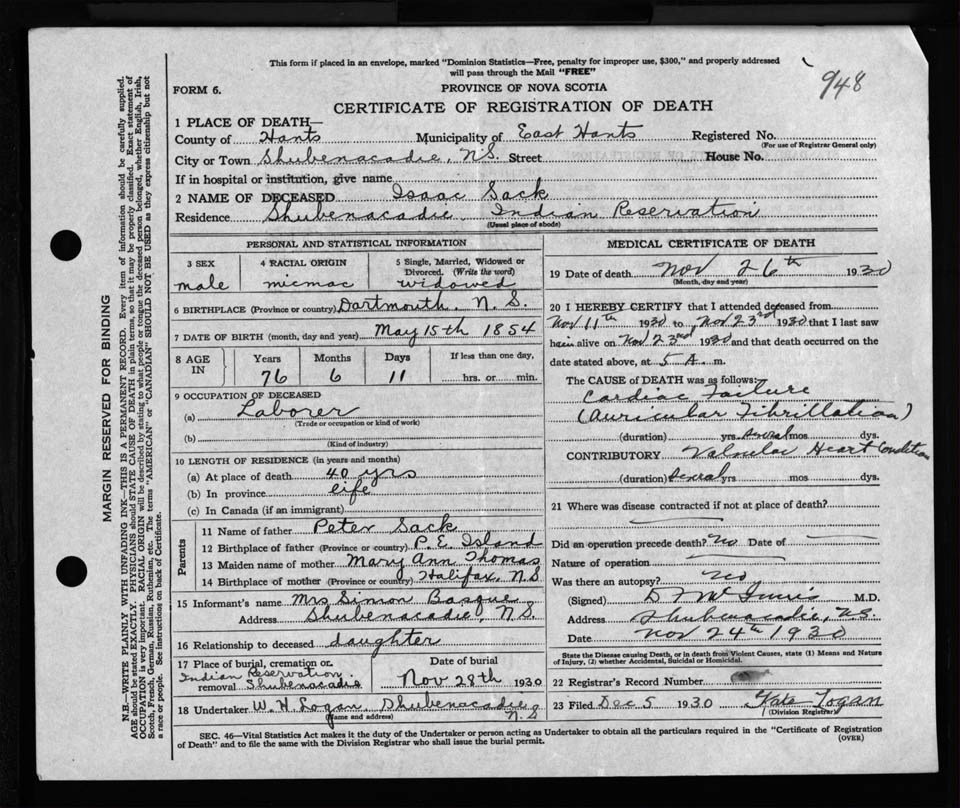 This form if placed in an envelope, marked "Dominion Statistics—Free, penalty for improper use, $300," and properly addressed
will pass through the Mail "FREE"
948
FORM 6.
PROVINCE OF NOVA SCOTIA
CERTIFICATE OF REGISTRATION OF DEATH
1 PLACE OF DEATH—
County of Hants Municipality of East Hants Registered No.
(For use of Registrar General only)
City or Town Shubenacadie, N.S. Street House No.
If in hospital or institution, give name
2 NAME OF DECEASED Isaac Sack
Residence Shubenacadie, Indian Reservation
(Usual place of abode)
PERSONAL AND STATISTICAL INFORMATION
3 SEX 4 RACIAL ORIGIN 5 Single, Married, Widowed or
Divorced. (Write the word)
male micmac widowed
6 BIRTHPLACE (Province or country) Dartmouth, N.S.
7 DATE OF BIRTH (month, day and year) May 15th 1854
8 AGE IN Years Months Days If less than one day,
76 6 11 hrs. or min.
9 OCCUPATION OF DECEASED
(a) Laborer
(Trade or occupation or kind of work)
(b)
(Kind of industry)
10 LENGTH OF RESIDENCE (in years and months)
(a) At place of death 40 yrs
(b) In province life
(c) In Canada (if an immigrant)
Parents
11 Name of father Peter Sack
12 Birthplace of father (Province or country) P.E. Island
13 Maiden name of mother Mary Ann Thomas
14 Birthplace of mother (Province or country) Halifax, N.S
15 Informant's name Mrs Simon Basque
Address Shubenacadie, N.S.
16 Relationship to deceased daughter
17 Place of burial, cremation or removal Indian Reservation Shubenacadie
Date of burial
Nov 28th 1930
18 Undertaker W. H. Logan, Shubenacadie N.S
(Name and address)
MEDICAL CERTIFICATE OF DEATH
19 Date of death Nov 26th 1930
(Month, day and year)
20 I HEREBY CERTIFY that I attended deceased from
Nov 11th 1930 to Nov 23rd 1930 that I last saw
him alive on Nov 23rd 1930 and that death occurred on the
date stated above, at 5 A. m.
The CAUSE OF DEATH was as follows:
Cardiac Failure
(Auricular Fibrillation)
(duration) yrs. several mos dys.
CONTRIBUTORY Valvular Heart Condition
(duration) several yrs mos dys.
21 Where was disease contracted if not at place of death?
Did an operation precede death? No Date of
Nature of operation
Was there an autopsy? No
(Signed) M.D.
Address Shubenacadie, N.S.
Date Nov 24th 1930
State the Disease causing Death, or in death from Violent Causes, state (1) Means and Nature
of Injury, (2) whether Accidental, Suicidal or Homicidal.
22 Registrar's Record Number
23 Filed Dec 5 1930 Kate Logan
(Division Registrar)
SEC. 46—Vital Statistics Act makes it the duty of the Undertaker or person acting as Undertaker to obtain all the particulars required in the "Certificate of Registration
of Death" and to file the same with the Division Registrar who shall issue the burial permit.
(OVER)
MARGIN RESERVED FOR BINDING
N.B.—WRITE PLAINLY WITH UNFADING INK—THIS IS A PERMANENT RECORD. Every item of information should be carefully supplied.
AGE should be stated EXACTLY. PHYSICIANS should STATE CAUSE OF DEATH in plain terms, so that it may be properly classified. Exact statement of
OCCUPATION is very important. RACIAL ORIGIN will be described by stating to what people or tongue the deceased person belonged, whether English, Irish,
Scotch, French, German, Russian, Ruthenian, etc. The terms "AMERICAN" or "CANADIAN" SHOULD NOT BE USED as they express citizenship but not
a race or people. See instructions on back of Certificate.